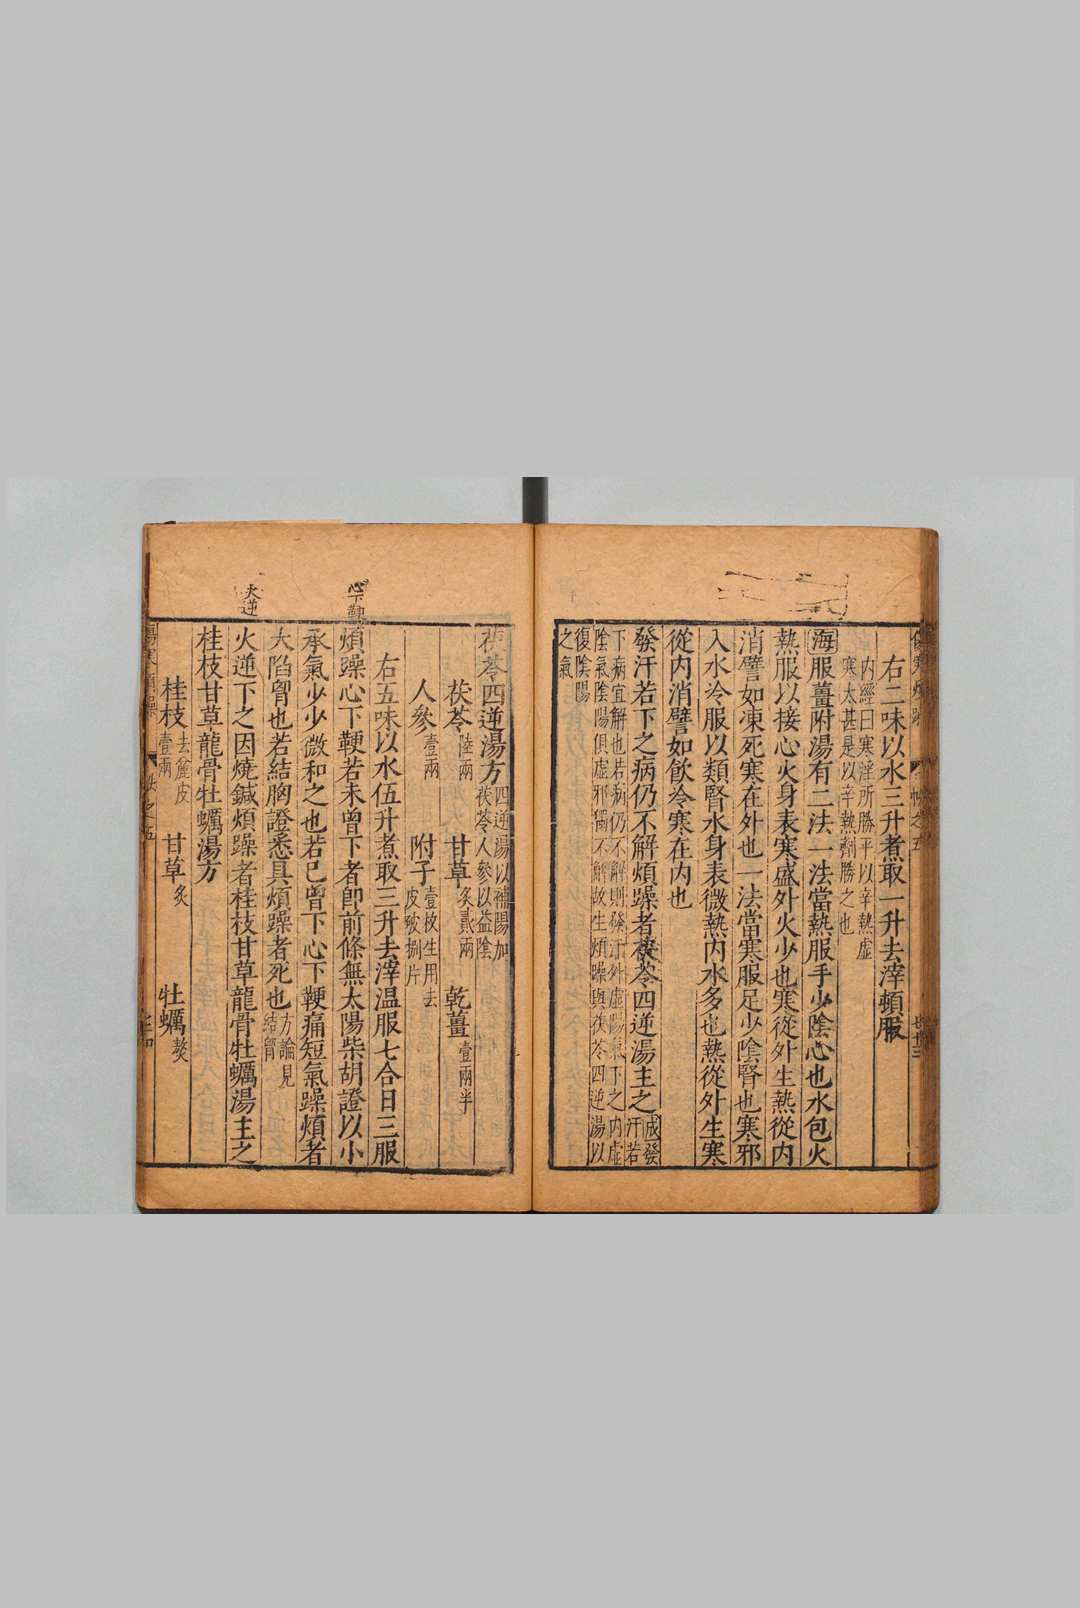 右二味以水三升煮取一升去滓頓服
內經曰寒淫所勝平以辛熱虛
寒太甚是以辛熱劑勝之也
海服薑附湯有二法一法當熱服手少陰心也水包火
熱服以接心火身表寒盛外火少也寒從外生熱從內
消譬如凍死寒在外也一法當寒服足少陰腎也寒邪
入水冷服以類腎水身表微熱內水多也熱從外生寒
從內消譬如飲冷寒在內也
發汗若下之病仍不解煩躁者茯苓四逆湯主之成發汗若
下病宜解也若病仍不解則發汗外虛陽氣下之內虛
陰氣陰陽俱虛邪獨不解故生煩躁與茯苓四逆湯以
復陰陽
之氣
茯苓四逆湯方四逆湯以補陽加茯苓人參以益陰
茯苓陸兩 甘草炙貳兩 乾薑壹兩半
人參壹兩 附子壹枚生用去皮破捌片
右五味以水伍升煮取三升去滓温服七合日三服
心下鞕
煩躁心下鞕若未曾下者卽前條無太陽柴胡證以小
承氣少少微和之也若已曾下心下鞕痛短氣躁煩者
大陷胷也若結胸證悉具煩躁者死也方論見結胷
火逆
火逆下之因燒鍼煩躁者桂枝甘草龍骨牡蠣湯主之
桂枝甘草龍骨牡蠣湯方
桂枝去麄皮壹兩 甘草炙 牡蠣熬